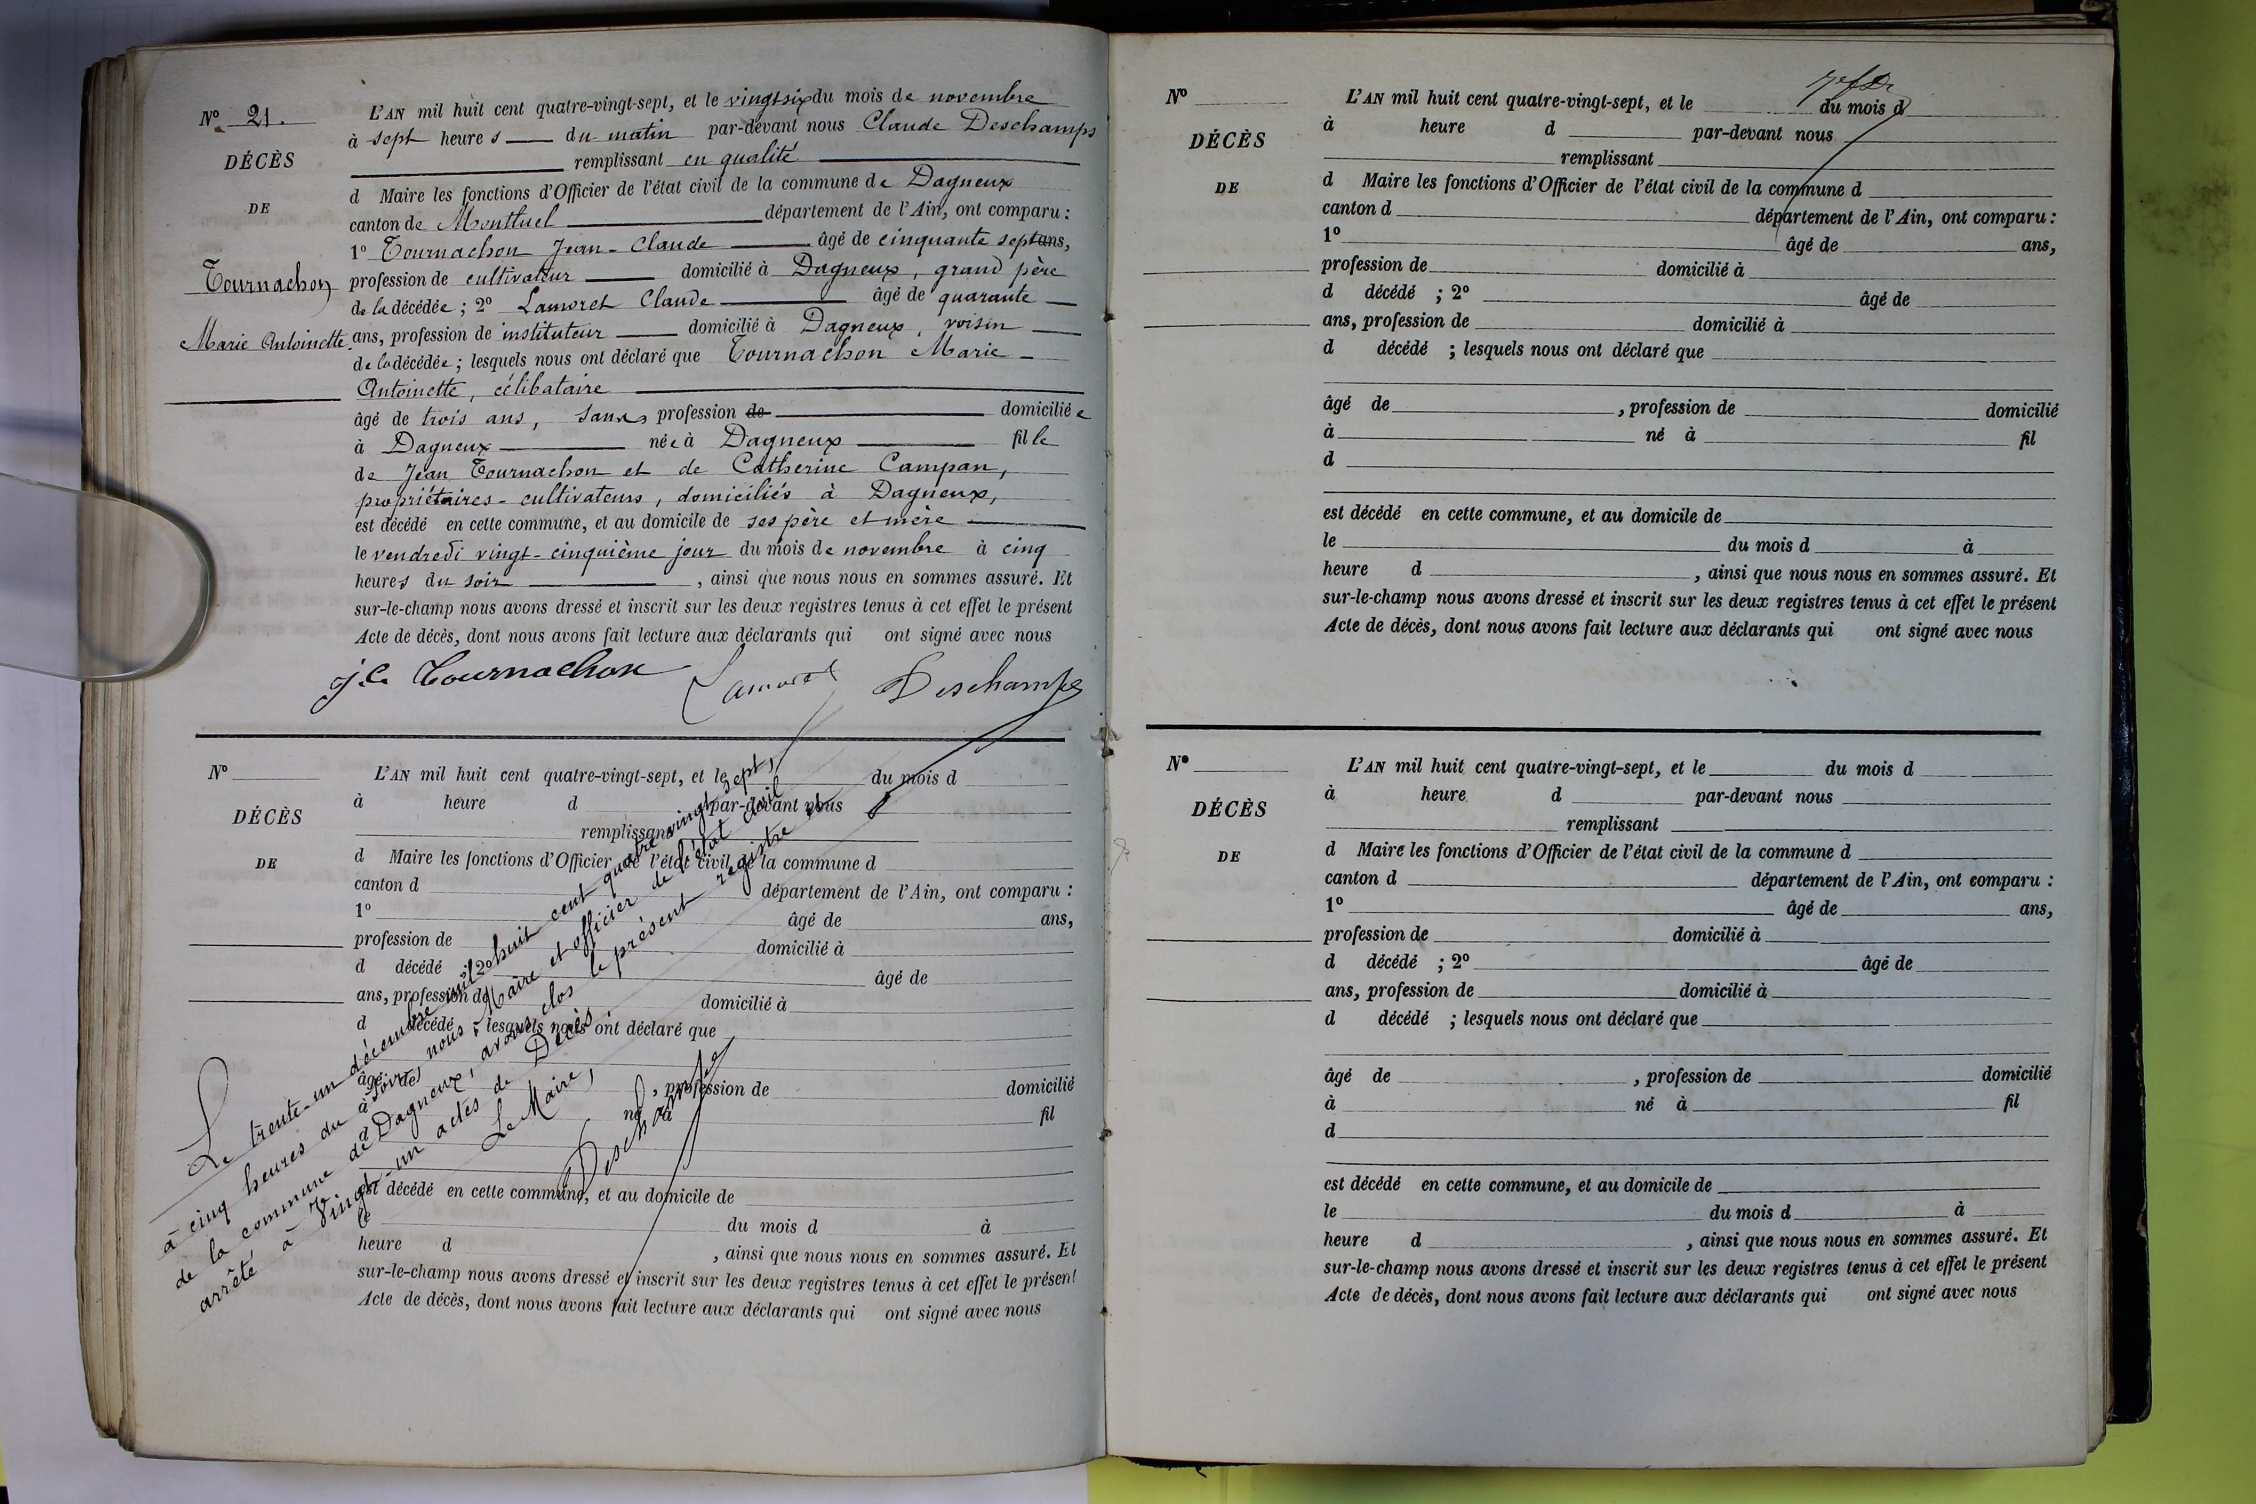 N° 21.
DÉCÈS
DE
Tournachon
Marie Antoinette
L'AN mil huit cent quatre-vingt-sept, et le vingt-six du mois de novembre
à sept heures du matin par-devant nous Claude Deschamps
remplissant en qualité
d Maire les fonctions d'Officier de l'état civil de la commune de Dagneux
canton de Montluel département de l'Ain, ont comparu :
1° Tournachon Jean-Claude âgé de cinquante sept ans,
profession de cultivateur domicilié à Dagneux, grand père
de la décédée ; 2° Lamoret Claude âgé de quarante
ans, profession de instituteur domicilié à Dagneux, voisin
de la décédée ; lesquels nous ont déclaré que Tournachon Marie-
Antoinette, célibataire
âgé de trois ans, sans profession de domiciliée
à Dagneux née à Dagneux fille
de Jean Tournachon et de Catherine Campan,
propriétaires-cultivateurs, domiciliés à Dagneux,
est décédé en cette commune, et au domicile de ses père et mère
le vendredi vingt-cinquième jour du mois de novembre à cinq
heures du soir , ainsi que nous nous en sommes assuré. Et
sur-le-champ nous avons dressé et inscrit sur les deux registres tenus à cet effet le présent
Acte de décès, dont nous avons fait lecture aux déclarants qui ont signé avec nous
J. C. Tournachon Lamoret Deschamps
N°
DÉCÈS
DE
L'AN mil huit cent quatre-vingt-sept, et le du mois d
à heure d par-devant nous
remplissant
d Maire les fonctions d'Officier de l'état civil de la commune d
canton d département de l'Ain, ont comparu :
1° âgé de ans,
profession de domicilié à
d décédé ; 2° âgé de
ans, profession de domicilié à
d décédé ; lesquels nous ont déclaré que
âgé de , profession de domicilié
à né à fil
d
est décédé en cette commune, et au domicile de
le du mois d à
heure d , ainsi que nous nous en sommes assuré. Et
sur-le-champ nous avons dressé et inscrit sur les deux registres tenus à cet effet le présent
Acte de décès, dont nous avons fait lecture aux déclarants qui ont signé avec nous
Le trente-un décembre mil huit cent quatre vingt sept,
à cinq heures du soir, nous, Maire et officier de l'état civil
de la commune de Dagneux, avons clos le présent registre et
arrêté à vingt-un actes de Décès.
Le Maire,
Deschamps
N°
DÉCÈS
DE
L'AN mil huit cent quatre-vingt-sept, et le du mois d
à heure d par-devant nous
remplissant
d Maire les fonctions d'Officier de l'état civil de la commune d
canton d département de l'Ain, ont comparu :
1° âgé de ans,
profession de domicilié à
d décédé ; 2° âgé de
ans, profession de domicilié à
d décédé ; lesquels nous ont déclaré que
âgé de , profession de domicilié
à né à fil
d
est décédé en cette commune, et au domicile de
le du mois d à
heure d , ainsi que nous nous en sommes assuré. Et
sur-le-champ nous avons dressé et inscrit sur les deux registres tenus à cet effet le présent
Acte de décès, dont nous avons fait lecture aux déclarants qui ont signé avec nous
N°
DÉCÈS
DE
L'AN mil huit cent quatre-vingt-sept, et le du mois d
à heure d par-devant nous
remplissant
d Maire les fonctions d'Officier de l'état civil de la commune d
canton d département de l'Ain, ont comparu :
1° âgé de ans,
profession de domicilié à
d décédé ; 2° âgé de
ans, profession de domicilié à
d décédé ; lesquels nous ont déclaré que
âgé de , profession de domicilié
à né à fil
d
est décédé en cette commune, et au domicile de
le du mois d à
heure d , ainsi que nous nous en sommes assuré. Et
sur-le-champ nous avons dressé et inscrit sur les deux registres tenus à cet effet le présent
Acte de décès, dont nous avons fait lecture aux déclarants qui ont signé avec nous